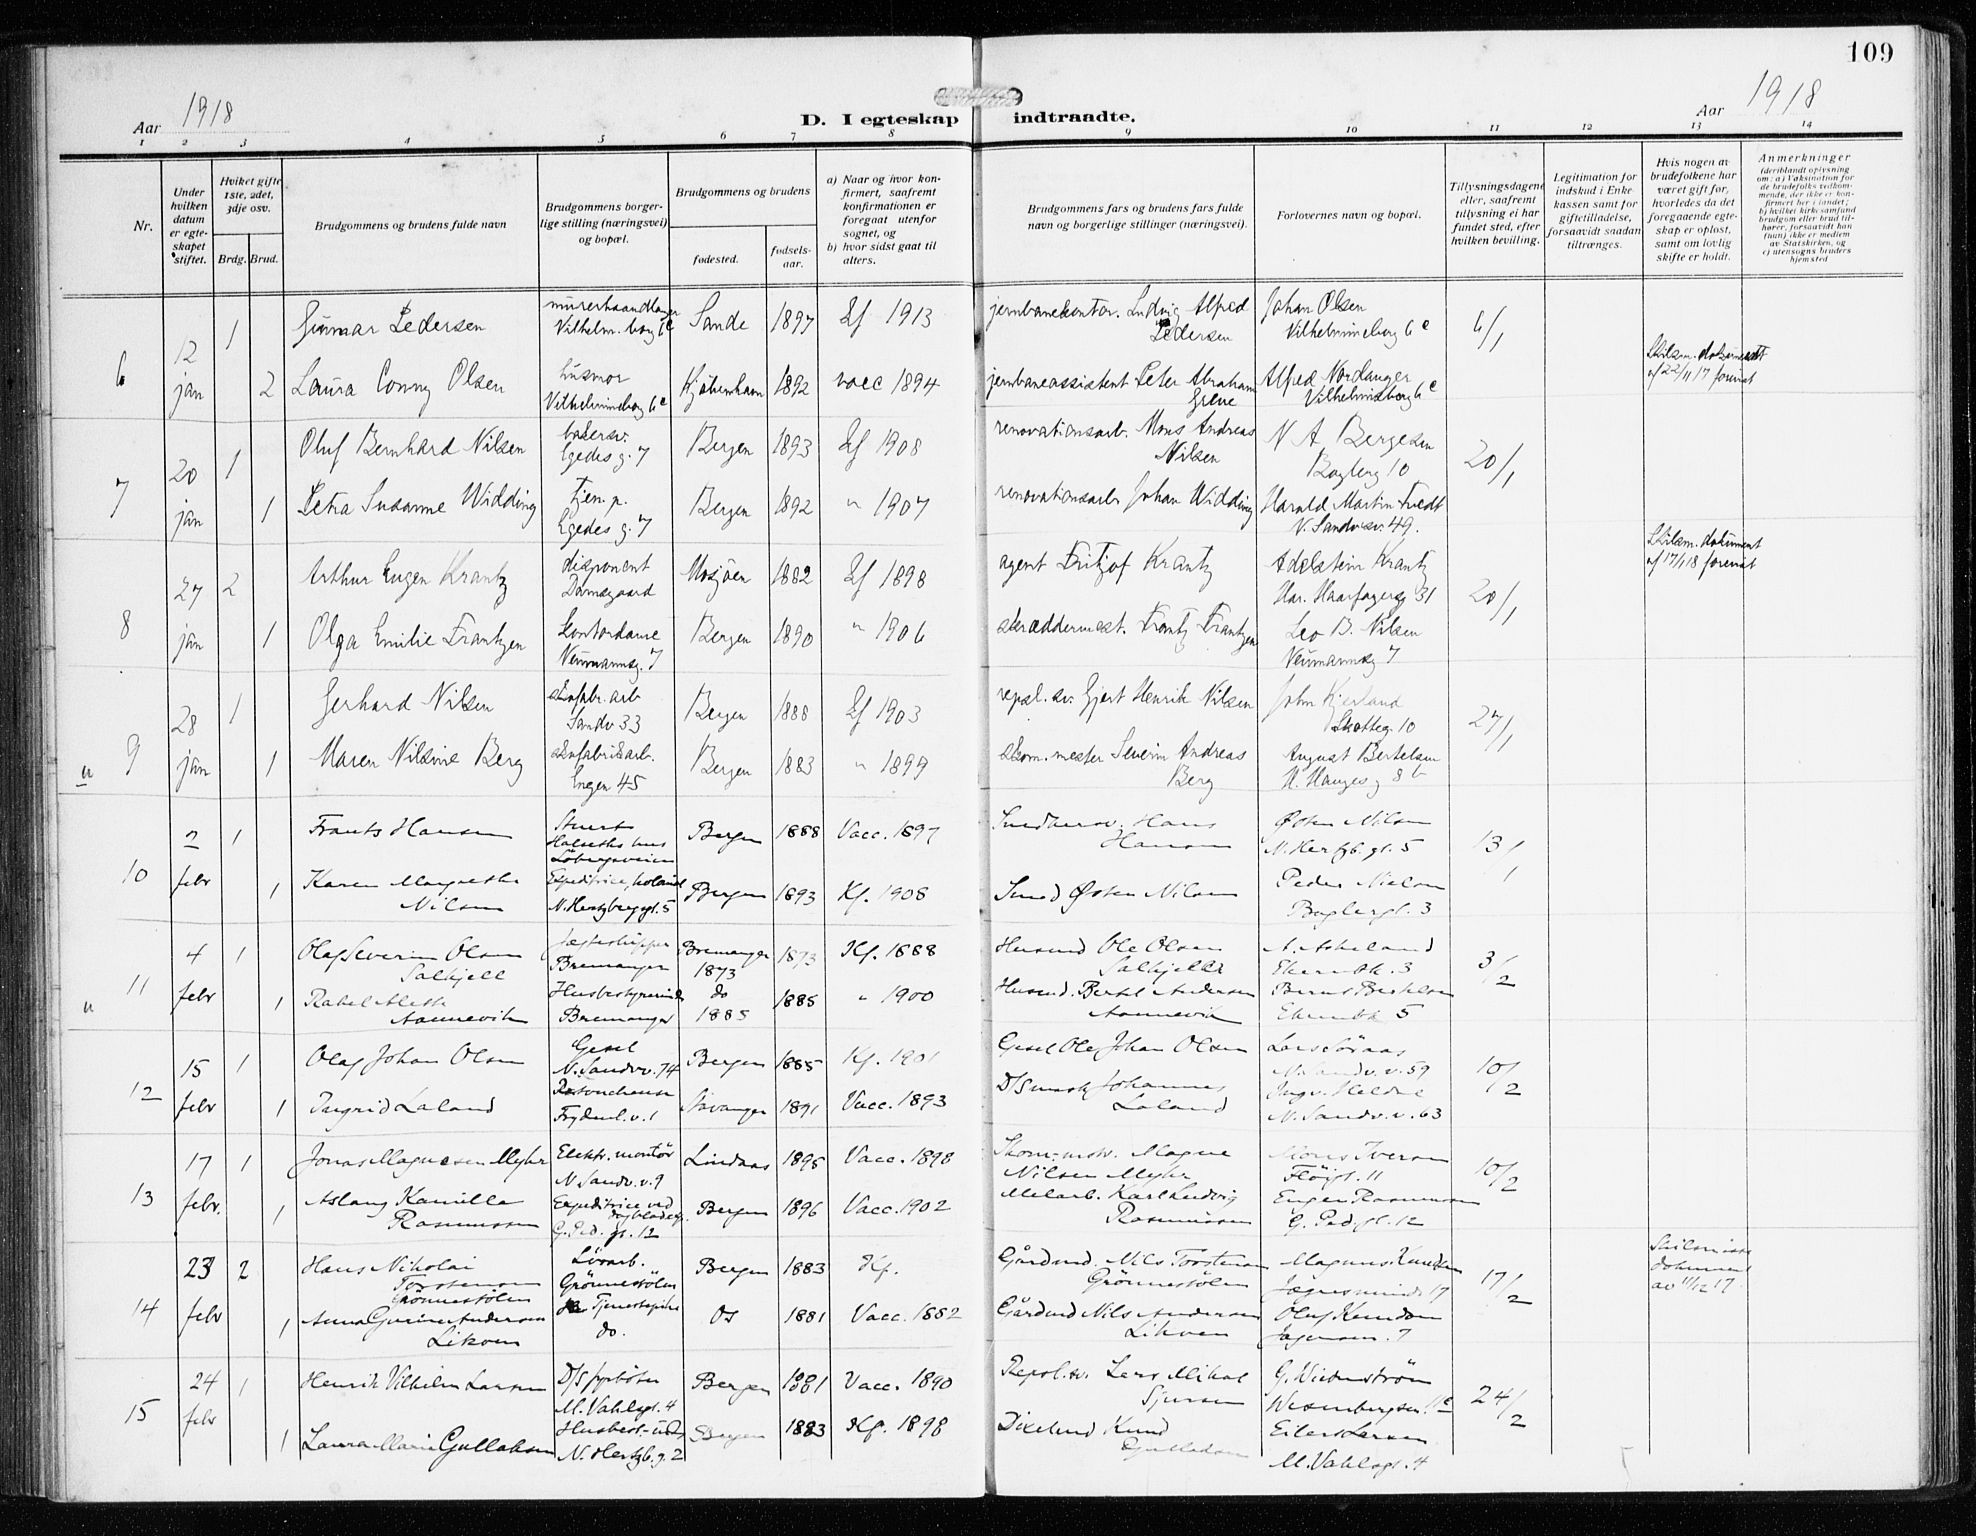 109
Aar 1918
D. I egteskap indtraadte.
Aar 1918
1 2 3 4 5 6 7 8 9 10 11 12 13 14
Nr.
Under hvilken datum er egteskapet stiftet.
Hvilket gifte 1ste, 2det, 3dje osv.
Brdg. Brud.
Brudgommens og brudens fulde navn
Brudgommens borgerlige stilling (næringsvei) og bopæl.
Brudgommens og brudens
fødested.
fødselsaar.
a) Naar og hvor konfirmert, saafremt konfirmationen er foregaat utenfor sognet, og
b) hvor sidst gaat til alters.
Brudgommens fars og brudens fars fulde navn og borgerlige stillinger (næringsvei).
Forlovernes navn og bopæl.
Tillysningsdagene eller, saafremt tillysning ei har fundet sted, efter hvilken bevilling.
Legitimation for indskud i Enkekassen samt for giftetilladelse, forsaavidt saadan tiltrænges.
Hvis nogen av brudefolkene har været gift før, hvorledes da det foregaaende egteskap er opløst, samt om lovlig skifte er holdt.
Anmerkninger (deriblandt oplysning om: a) Vaksination for de brudefolks vedkommende, der ikke er konfirmert her i landet; b) hvilket kirkesamfund brudgom eller brud tilhører, forsaavidt han (hun) ikke er medlem av Statskirken, og c) utensogns bruders hjemsted
6 12 jan 1 Gunnar Pedersen murerhaandlanger Vilhelm.borg 6c Sande 1897 Kf 1913 jernbanekontor. Ludvig Alfred Pedersen Johan Olsen Vilhelmineborg 6c 6/1
2 Laura Conny Olsen husmor Vilhelmineborg 6c Kjøbenhavn 1892 vacc 1894 jernbaneassistent Peter Abraham Greve Alfred Nordanger Vilhelmineborg 6c Skilsm. dokument af 22/11 17 forevist
7 20 jan 1 Oluf Bernhard Nilsen bakersv. Egedes g. 7 Bergen 1893 Kf 1908 renovationsarb. Mons Andreas Nilsen N A Bergesen 10 20/1
1 Petra Susanne Widding tjen.p. Egedes g. 7 Bergen 1892 " 1907 renovationsarb Johan Widding Harald Martin Tvedt N. Sandv.sv. 49.
8 27 jan 2 Arthur Eugen Krantz disponent Damsgaard Mosjøen 1882 Kf 1898 agent Fritjof Krantz Adelstein Krantz Har. Haarfagersg 31 20/1 Skilsm. dokument af 17/1 18 forevist
1 Olga Emilie Frantzen kontordame Neumannsg. 7 Bergen 1890 " 1906 skræddermest. Frantz Frantzen Leo B. Nilsen Neumannsg 7
9 28 jan 1 Gerhard Nilsen skofabr. arb Sandv 33 Bergen 1888 Kf 1903 repsl. sv. Gjert Henrik Nilsen John Kjerland Skotteg. 10 27/1
u 1 Maren Nilsine Berg skofabrikarb. Engen 45 Bergen 1883 " 1899 skom. mester Severin Andreas Berg August Bertelsen H. Hauges g 8b
10 2 febr 1 Frants Hansen Stuert Løbergsveien Bergen 1888 Vacc. 1897 Snedkersv. Hans Hansen Østen Nilsen N. Hertzb. gt. 5 13/1
1 Karen Margrethe Nilsen Expeditrice N. Hertzberggt. 5 Bergen 1893 Kf. 1908 Smed Østen Nilsen Peder Nielsen Baglergt. 3
11 4 febr 1 Olaf Severin Olsen Salhjell Jægteskipper Bremanger Bremanger 1873 1873 Kf. 1888 Husmd Ole Olsen Salhjelle A. Askeland 3 3/2
u 1 Rakel Alette Aannevik Husbestyrerinde Bremanger do 1885 1885 " 1900 Husmd. Bertel Andersen Aannevik Bernt Bertelsen 5
12 15 febr 1 Olaf Johan Olsen Gesel N. Sandv.v. 74 Bergen 1885 Kf. 1901 Gesel Ole Johan Olsen Lars Søraas N. Sandv.v. 59 10/2
1 Ingrid Laland Retoucheuse Frydenl.v. 1 Stavanger 1891 Vacc. 1893 D/Smask Johannes Laland Ingv. Heldal N. Sandv.v. 63
13 17 febr. 1 Jonas Magnesen Myhr Elektr. montør N. Sandv.v. 9 Lindaas 1895 Vacc. 1898 Skom.mstr. Magne Nilsen Myhr Mons Iversen Fløigt. 11 10/2
1 Aslaug Kamilla Rasmussen Expeditrice ved G. Ped. gt. 12 Bergen 1896 Vacc. 1902 Malarb. Karl Ludvig Rasmussen Eugen Rasmussen G. Ped. gt. 12
14 23 febr 2 Hans Nikolai Torstensen Grønnestølen Løsarb. Grønnestølen Bergen 1883 Kf. Gårdmd. Nils Torstensen Grønnestølen Magnus Knudsen 17 17/2 Skilsmisse dokument av 11/12 17.
1 Anna Gurine Andersen Likven Tjenestepike do. Os 1881 Vacc. 1882 Gårdmd Nils Andersen Likven Olaf 7
15 24 febr 1 Henrik Vilhelm Larsen D/S fyrbøter M. Vahlsgt. 4 Bergen 1881 Vacc. 1890 Repsl.sv. Lars Mikal Sjursen G. Widenstrøm 24/2
1 Laura Marie Gullaksen Husbest.inde N. Hertzb.g. 2 Bergen 1883 Kf. 1898 Knud Eilert Larsen M. Vahlsgt. 4